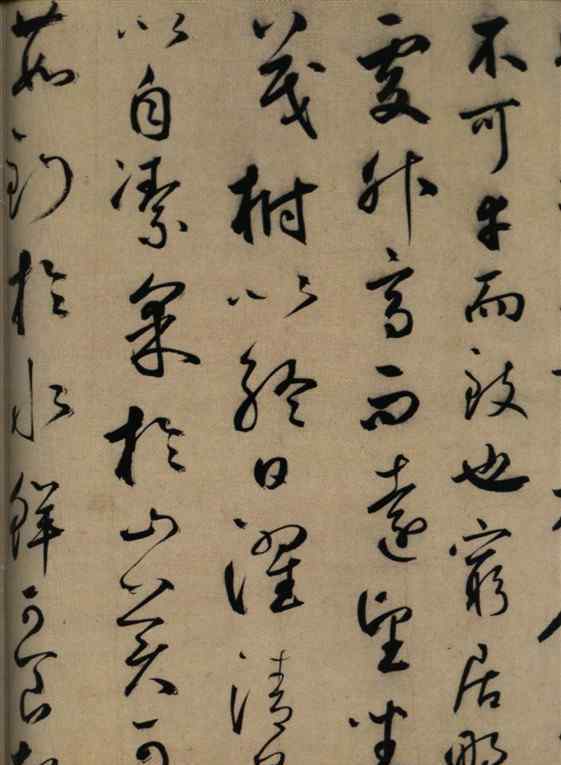 不可幸而致也窮居野
處升高而遠望坐
茂樹以終日濯清
以自潔采於山美可
茹釣於水鮮可食